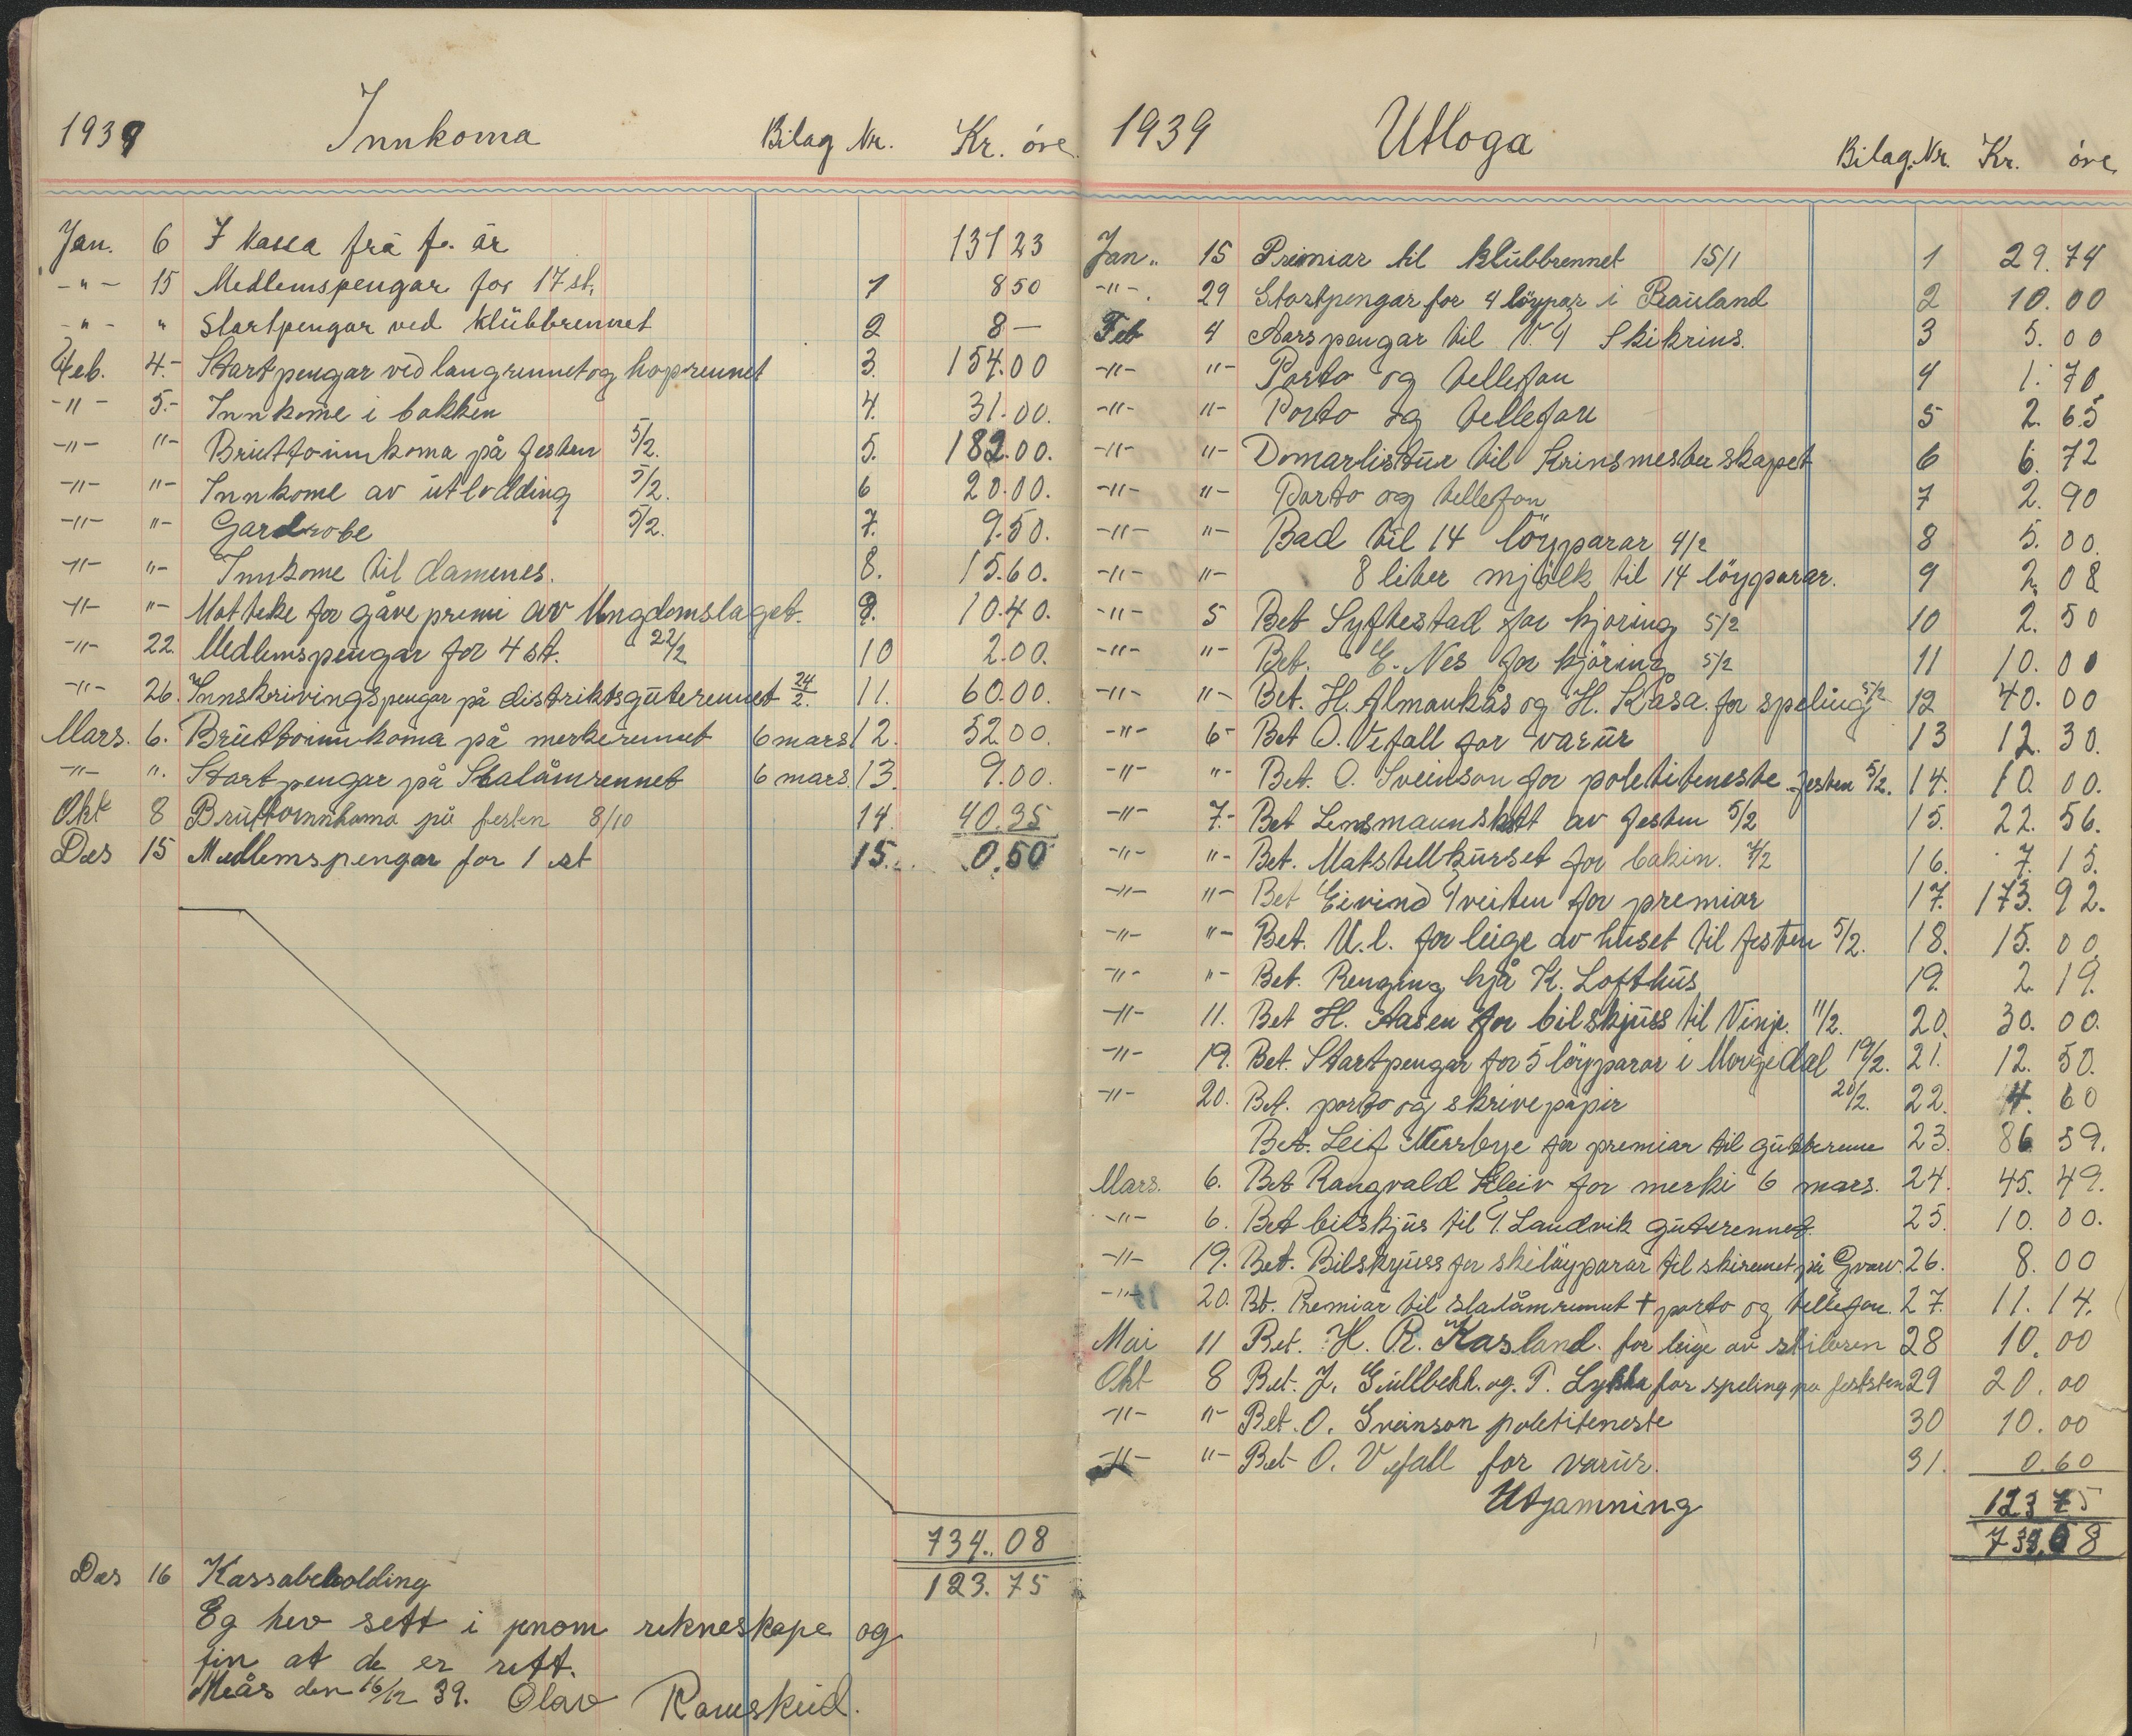 1939 Innkoma Bilag Nr. Kr. öre
Jan. 6 I kassa frå f. år 131 23
-"- 15 Medlemspengar for 17 st. 1 8 50
-"- " Startpengar ved klübbrennet 2 8 —
Feb. 4.- Startpengar ved langrennet og hoprennet 3. 154.00
-"- 5.- Innkome i bakken 4. 31.00.
-"- "- Brüttoinnkoma på festen 5/2. 5. 182.00.
-"- "- Innkome av ütlodding 5/2. 6 20.00.
-"- "- Gardrobe 5/2. 7. 9.50.
-"- "- Innkome til damenes. 8. 15.60.
-"- "- Motteke for gåve premi av Ungdomslaget. 9. 10.40.
-"- 22. Medlemspengar for 4 st. 22/2 10 2.00.
-"- 26. Innskrivingspengar på distriktsgüterennet 24/2. 11. 60.00.
Mars. 6. Brüttoinnkoma på merkerennet 6 mars 12. 52.00.
-"- ". Startpengar på Slalåmrennet 6 mars. 13. 9.00.
Okt 8 Brüttoinnkoma på festen 8/10 14. 40.35
Des 15 Medlemspengar for 1 st 15. 0.50
734.08
Des 16 Kassabeholding 123.75
Eg hev sett i jenom rekneskape og
fin at de er rett.
Meås den 16/12 39. Olav Romskud.
1939 Utloga Bilag. Nr. Kr. öre
Jan. 15 Premiar til klübbrennet 15/1 1 29.74
-"-. 29 Startpengar for 4 löypar i Rauland 2 10.00
Feb 4 Aarspengar til V. T Skikrins. 3 5.00
-"- "- Porto og tellefon 4 1.70
-"- "- Porto og tellefon 5 2.65
-"- "- Domarlistür til Krinsmesterskapet 6 6.72
-"- "- Porto og tellefon 7 2.90
-"- "- Bad til 14 löypparar 4/2 8 5.00.
-"- "- 8 liter mjölk til 14 löypparar. 9 2.08
-"- 5 Bet Syftestad for kjöring 5/2 10 2.50
-"- "- Bet. E. Nes for kjöring 5/2 11 10.00
-"- "- Bet. H. Almankås og H. Kåsa. for speling 5/2 12 40.00
-"- 6- Bet O. Vefall for varür 13 12.30.
-"- "- Bet. O. Sveinson for poletiteneste festen 5/2. 14. 10.00.
-"- 7.- Bet Lensmannskatt av festen 5/2 15. 22.56.
-"- "- Bet. Matstellkürset for bakin. 7/2 16. 7.15.
-"- "- Bet Eivind Tveiten for premiar 17. 173.92.
-"- "- Bet. U.l. for leige av hüset til festen 5/2. 18. 15.00.
-"- "- Bet. Renging hjå K. Lofthüs 19. 2.19.
-"- 11. Bet H. Aasen for bilskjüss til Vinje. 11/2. 20. 30.00.
-"- 19. Bet. Startpengar for 5 löypparar i Morgedal 19/2. 21. 12.50.
-"- 20. Bet. porto og skrivepapir 20/2. 22. 4.60
Bet. Leif Messbye for premiar til gütterenne 23. 86.59.
Mars. 6. Bet Rangvald Kleiv for merki 6 mars. 24. 45.49.
-"- 6. Bet bilskjüs til T. Landvik güterennet. 25. 10.00.
-"- 19. Bet. Bilskjüss for skilöypparar til skirennet på Gvarv. 26. 8.00
-"- 20. Bt. Premiar til slalåmrennet + porto og tellefon. 27. 11.14.
Mai 11 Bet. H. R. Kasland. for leige av skiloren 28 10.00
Okt 8 Bet. J. Güllbekk. og. T. Lykka for speling på feststen 29 20.00
-"- "- Bet. O. Sveinson poletiteneste 30 10.00
-"- "- Bet O. Vefall for varür. 31. 0.60
Utjamning 123 75
734,08